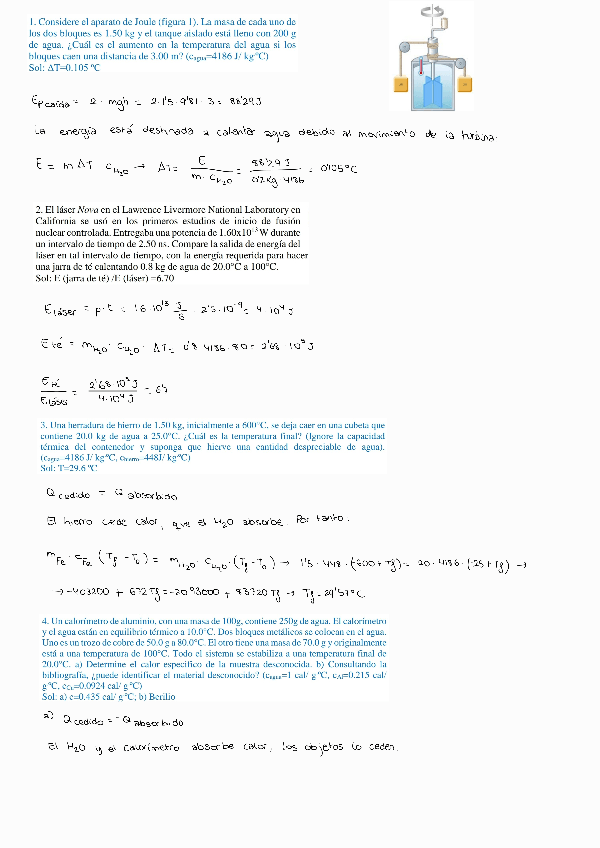 1. Considere el aparato de Joule (figura 1). La masa de cada uno de
los dos bloques es 1.50 kg y el tanque aislado está lleno con 200 g
de agua. ¿Cuál es el aumento en la temperatura del agua si los
bloques caen una distancia de 3.00 m? (cagua=4186 J/ kg°C)
Sol: ΔT=0.105 ºC
Ep caída = 2 · mgh = 2·1'5·9'81·3 = 88'29J
La energía está destinada a calentar agua debido al movimiento de la turbina.
E = m ΔT cH2O → ΔT = E / m · cH2O = 88'29 J / 0'2kg 4186 = 0'105°C
2. El láser Nova en el Lawrence Livermore National Laboratory en
California se usó en los primeros estudios de inicio de fusión
nuclear controlada. Entregaba una potencia de 1.60x10¹³ W durante
un intervalo de tiempo de 2.50 ns. Compare la salida de energía del
láser en tal intervalo de tiempo, con la energía requerida para hacer
una jarra de té calentando 0.8 kg de agua de 20.0°C a 100°C.
Sol: E (jarra de té) /E (láser) =6.70
Eláser = p·t = 1'6·10¹³ J/s · 2'5·10⁻⁹ = 4·10⁴ J
E té = mH2O · cH2O · ΔT = 0'8·4186·80 = 2'68·10⁵ J
E té / E láser = 2'68·10⁵ J / 4·10⁴ J = 6'7
3. Una herradura de hierro de 1.50 kg, inicialmente a 600°C, se deja caer en una cubeta que
contiene 20.0 kg de agua a 25.0°C. ¿Cuál es la temperatura final? (Ignore la capacidad
térmica del contenedor y suponga que hierve una cantidad despreciable de agua).
(cagua=4186 J/ kg°C, chierro=448J/ kg°C)
Sol: T=29.6 ºC
Q cedido = Q absorbido
El hierro cede calor, que el H2O absorbe. Por tanto.
mFe · cFe (Tf - To) = mH2O · cH2O · (Tf - To) → 1'5 · 448 · (-600 + Tf) = 20 · 4186 · (-25 + Tf) →
→ -403200 + 672 Tf = -2093000 + 83720 Tf → Tf = 29'57°C
4. Un calorímetro de aluminio, con una masa de 100g, contiene 250g de agua. El calorímetro
y el agua están en equilibrio térmico a 10.0°C. Dos bloques metálicos se colocan en el agua.
Uno es un trozo de cobre de 50.0 g a 80.0°C. El otro tiene una masa de 70.0 g y originalmente
está a una temperatura de 100°C. Todo el sistema se estabiliza a una temperatura final de
20.0°C. a) Determine el calor específico de la muestra desconocida. b) Consultando la
bibliografía, ¿puede identificar el material desconocido? (cagua=1 cal/ g°C, cAl=0.215 cal/
g°C, cCu=0.0924 cal/ g°C)
Sol: a) c=0.435 cal/ g°C; b) Berilio
a) Q cedido = -Q absorbido
El H2O y el calorímetro absorbe calor, los objetos lo ceden.